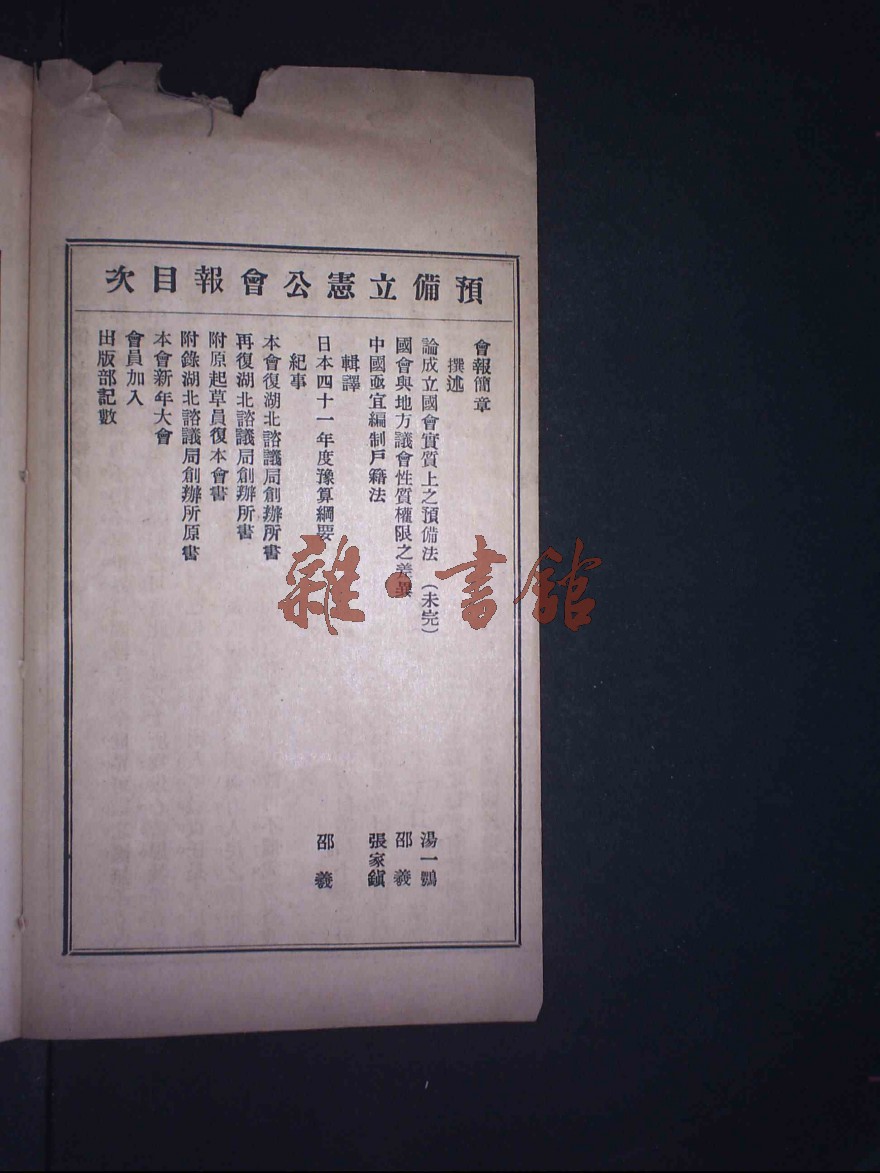 預備立憲公會報目次
會報簡章
撰述
論成立國會實質上之預備法（未完） 湯一鶚
國會與地方議會性質權限之差異 邵羲
中國亟宜編制戶籍法 張家鎮
輯譯
日本四十一年度豫算綱要 邵羲
紀事
本會復湖北諮議局創辦所書
再復湖北諮議局創辦所書
附原起草員復本會書
附錄湖北諮議局創辦所原書
本會新年大會
會員加入
出版部記數
雜·書館